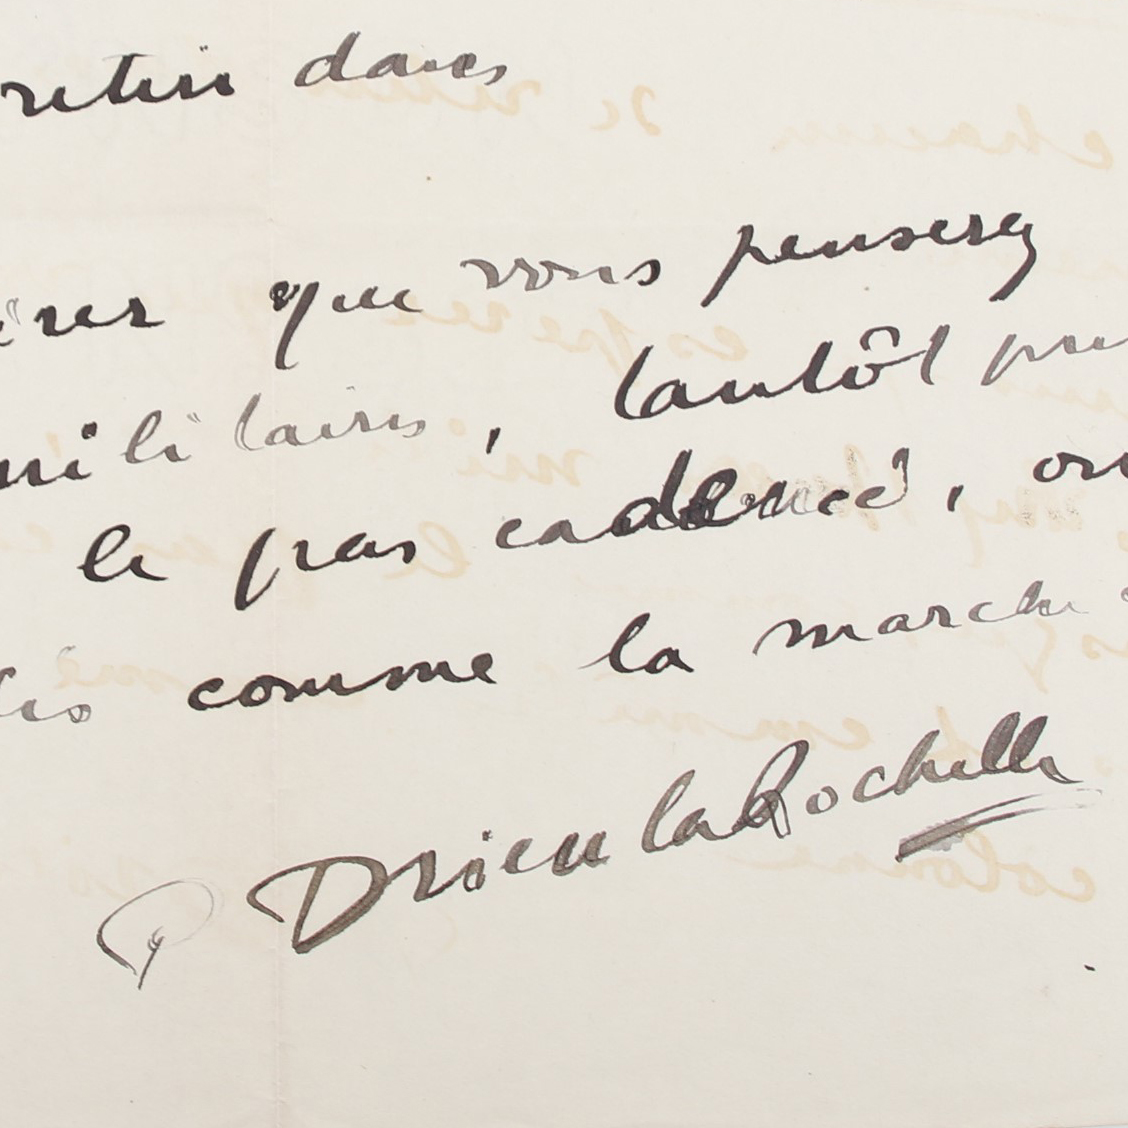 retenir dans
érer que vous penserez
militaires, tantôt
le pas cadencé, ou
comme la marche
P Drieu la Rochelle